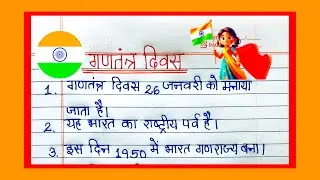 गणतंत्र दिवस
1. गणतंत्र दिवस 26 जनवरी को मनाया
जाता है।
2. यह भारत का राष्ट्रीय पर्व है।
3. इस दिन 1950 मे भारत गणराज्य बना।